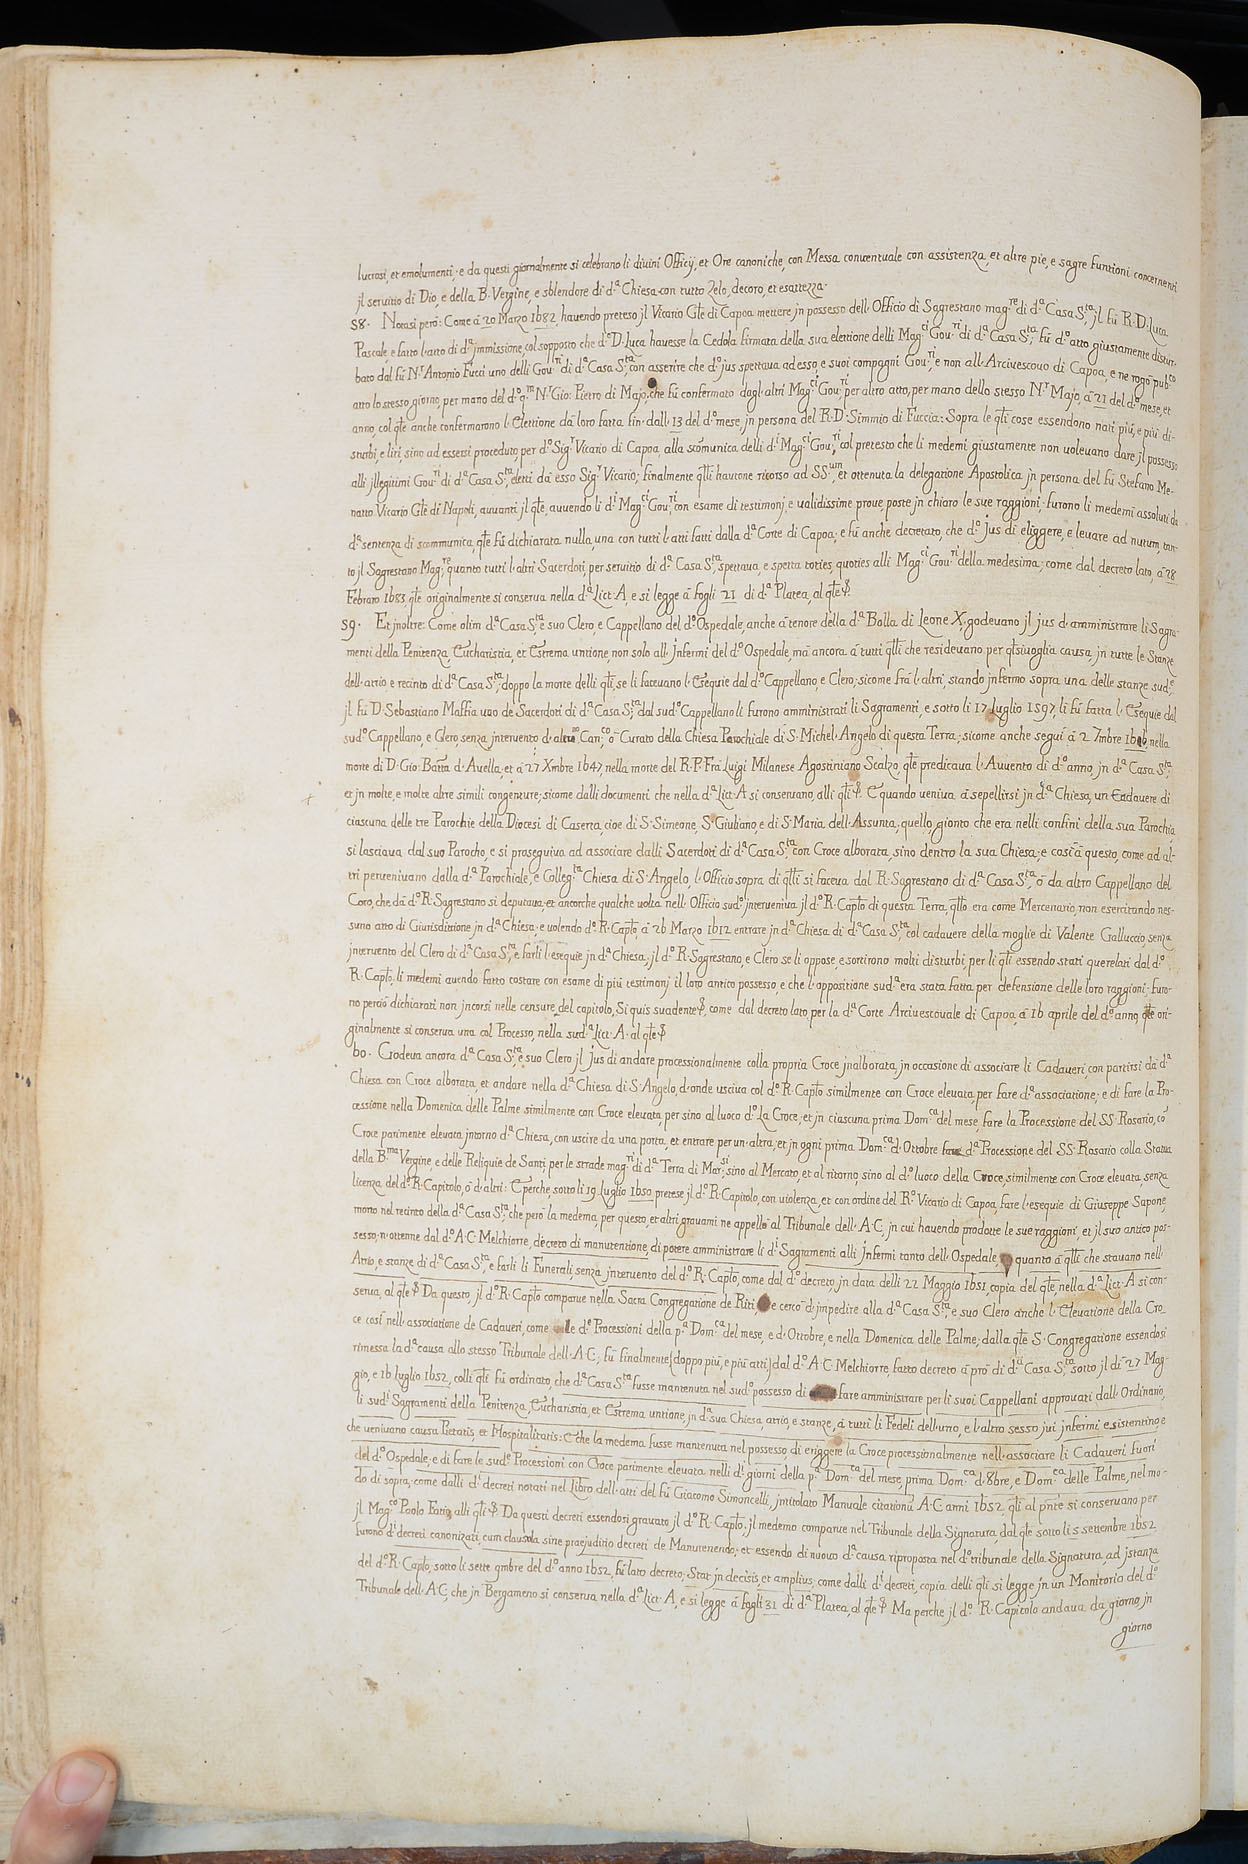 lucrosi, et emolumenti: e da questi giornalmente si celebrano li diuini Officÿ, et Ore canoniche, con Messa conuentuale con assistenza, et altre pie, e sagre funtioni concernenti
jl seruitio di Dio, e della B. Vergine, e sblendore di d.ª Chiesa con tutto zelo, decoro, et esattezza.
58. Notasi però: Come à 20 Marzo 1682, hauendo preteso jl Vicario Gle di Capoa mettere jn possesso dell'Officio di Sagrestano mag.re di d.ª Casa S.ta, jl fù R. D. Luca
Pascale, e fatto l'atto di d.ª jmmissione, col sopposto che d.º D. Luca hauesse la Cedola firmata della sua elettione delli Mag.ci Gou.ri di d.ª Casa S.ta; fù d.º atto giustamente distur-
bato dal fù N.r Antonio Fucci uno delli Gou.ri di d.ª Casa S.ta, con asserire che d.º jus spettaua ad esso, e suoi compagni Gou.ri, e non all'Arciuescouo di Capoa, e ne rogò pub.co
atto lo stesso giorno, per mano del d.º q.m N.r Gio: Pietro di Majo, che fù confermato dagl'altri Mag.ci Gou.ri, per altro atto, per mano dello stesso N.r Majo, à 21 del d.º mese, et
anno, col qłe anche confermarono l'Elettione da loro fatta fin' dall'13 del d.º mese, jn persona del R. D. Simmio di Fuccia: Sopra le qłi cose essendono nati più, e più di-
sturbi, e liti, sino ad essersi proceduto, per d.º Sig.r Vicario di Capoa, alla scomunica delli d.i Mag.ci Gou.ri, col pretesto che li medemi giustamente non uoleuano dare jl possesso
alli jllegitimi Gou.ri di d.ª Casa S.ta, eletti da esso Sig.r Vicario; finalmente qłli hauutone ricorso ad SS.um, et ottenuta la delegatione Apostolica jn persona del fù Stefano Me-
natto Vicario Gle di Napoli, auuanti jl qłe, auuendo li d.i Mag.ci Gou.ri, con esame di testimonj, e ualidissime proue, poste jn chiaro le sue raggioni, furono li medemi assoluti da
d.ª sentenza di scommunica, qłe fù dichiarata nulla, una con tutti l'atti fatti dalla d.ª Corte di Capoa; e fù anche decretato, che d.º jus di eliggere, e leuare ad nutum, tan-
to jl Sagrestano Mag.re, quanto tutti l'altri Sacerdoti, per seruitio di d.ª Casa S.ta, spettaua, e spetta toties, quoties alli Mag.ci Gou.ri della medesima; come dal decreto lato, à 28
Febraro 1683, qłe originalmente si conserua nella d.ª Litt: A, e si legge à fogli 21 di d.ª Platea, al qłe &.
59. Et jnoltre: Come olim d.ª Casa S.ta, e suo Clero, e Cappellano del d.º Ospedale, anche à tenore della d.ª Bolla di Leone X, godeuano jl jus d'amministrare li Sagra-
menti della Penitenza, Eucharistia, et Estrema untione, non solo all'Jnfermi del d.º Ospedale, mà ancora à tutti qłli che resideuano per qłsiuoglia causa, jn tutte le Stanze
dell'atrio e recinto di d.ª Casa S.ta; doppo la morte delli qłi, se li faceuano l'Esequie dal d.º Cappellano, e Clero; sicome frà l'altri, stando jnfermo sopra una delle stanze sud.e
jl fù D. Sebastiano Maffia uno de Sacerdoti di d.ª Casa S.ta, dal sud.º Cappellano li furono amministrati li Sagramenti, e sotto li 17 luglio 1597, li fù fatta l'Esequie dal
sud.º Cappellano, e Clero, senza jnteruento d'altro Can.co, ò Curato della Chiesa Parochiale di S. Michel'Angelo di questa Terra; sicome anche seguì à 2 7mbre nella
morte di D. Gio: Batta d'Auella, et à 27 Xmbre 1647, nella morte del R. P. Frà Luigi Milanese Agostiniano Scalzo, qłe predicaua l'Auuento di d.º anno, jn d.ª Casa S.ta;
et jn molte, e molte altre simili congenture; sicome dalli documenti che nella d.ª Litt: A si conseruano, alli qłi &. E quando ueniua à sepellirsi jn d.ª Chiesa, un Cadauere di
ciascuna delle tre Parochie della Diocesi di Caserta, cioe di S. Simeone, S. Giuliano, e di S. Maria dell'Assunta, quello, gionto che era nelli confini della sua Parochia
si lasciaua dal suo Parocho, e si proseguiua ad associare dalli Sacerdoti di d.ª Casa S.ta, con Croce alborata, sino dentro la sua Chiesa; e così à questo, come ad al-
tri perueniuano dalla d.ª Parochiale, e Colleg.ta Chiesa di S. Angelo, l'Officio sopra di qłli si faceua dal R. Sagrestano di d.ª Casa S.ta, ò da altro Cappellano del
Coro, che dà d.º R. Sagrestano si deputaua, et ancorche qualche uolta nell'Officio sud.º jnterueniua jl d.º R. Capto di questa Terra, qłlo era come Mercenario, non esercitando nes-
suno atto di Giurisdizione jn d.ª Chiesa: e uolendo d.º R. Capto, à 26 Marzo 1612 entrare jn d.ª Chiesa di d.ª Casa S.ta, col cadauere della moglie di Valente Galluccio, senza
jnteruento del Clero di d.ª Casa S.ta, e farli l'esequie jn d.ª Chiesa; jl d.º R. Sagrestano, e Clero se li oppose, e sortirono molti disturbi, per li qłi essendo stati querelati dal d.º
R. Capto, li medemi auendo fatto costare con esame di più testimonj il loro antico possesso, e che l'oppositione sud.ª era stata fatta per defensione delle loro raggioni; furo-
no perciò dichiarati non jncorsi nelle censure del capitolo, Si quis suadente &, come dal decreto lato, per la d.ª Corte Arciuescouale di Capoa, à 16 aprile del d.º anno, qłe ori-
ginalmente si conserua una col Processo, nella sud.ª Litt: A. al qłe &
60. Godeua ancora d.ª Casa S.ta, e suo Clero jl jus di andare processionalmente colla propria Croce jnalborata, jn occasione di associare li Cadaueri, con partirsi dà d.ª
Chiesa con Croce alborata, et andare nella d.ª Chiesa di S. Angelo, d'onde usciua col d.º R. Capto similmente con Croce eleuata, per fare d.ª associatione; e di fare la Pro-
cessione nella Domenica delle Palme similmente con Croce eleuata, per sino al luoco d.º La Croce, et jn ciascuna prima Dom.ca del mese, fare la Processione del SS. Rosario, cō
Croce parimente eleuata jntorno d.ª Chiesa, con uscire da una porta, et entrare per un'altra, et jn ogni prima Dom.ca d'Ottobre fare d.ª Processione del SS. Rosario colla Statua
della B.ma Vergine, e delle Reliquie de Santi, per le strade mag.ri di d.ª Terra di Mar.si, sino al Mercato, et al ritorno, sino al d.º luoco della Croce, similmente con Croce eleuata, senza
licenza del d.º R. Capitolo, ò d'altri: E perche, sotto li 19 luglio 1650, pretese jl d.º R. Capitolo, con uiolenza, et con ordine del R.º Vicario di Capoa, fare l'esequie di Giuseppe Sapone,
morto nel recinto della d.ª Casa S.ta, che però la medema, per questo, et altri grauami ne appellò al Tribunale dell'A. C., jn cui hauendo prodotte le sue raggioni, et jl suo antico pos-
sesso, n'ottenne dal d.º A. C. Melchiorre, decreto di manutentione, di potere amministrare li d.i Sagramenti alli Jnfermi tanto dell'Ospedale, quanto à qłli che stauano nell'
Atrio, e stanze di d.ª Casa S.ta, e farli li Funerali, senza jnteruento del d.º R. Capto, come dal d.º decreto, jn data delli 22 Maggio 1651, copia del qłe, nella d.ª Litt: A si con-
serua, al qłe & Da questo, jl d.º R. Capto comparue nella Sacra Congregatione de Riti e cercò d'impedire alla d.ª Casa S.ta, e suo Clero anche l'Eleuatione della Cro-
ce così nell'associatione de Cadaueri, come d.e Processioni della p.ª Dom.ca del mese, e d'Ottobre, e nella Domenica delle Palme; dalla qłe S. Congregatione essendosi
rimessa la d.ª causa allo stesso Tribunale dell'A. C.; fù finalmente (doppo più, e più atti) dal d.º A. C. Melchiorre, fatto decreto à prò di d.ª Casa S.ta, sotto jl dì 27 Mag-
gio, e 16 luglio 1652, colli qłi fù ordinato, che d.ª Casa S.ta fusse mantenuta nel sud.º possesso di fare amministrare per li suoi Cappellani approuati dall'Ordinario,
li sud.i Sagramenti della Penitenza, Eucharistia, et Estrema untione, jn d.ª sua Chiesa, atrio, e stanze, à tutti li Fedeli dell'uno, e l'altro sesso jui jnfermi esistentino e
che ueniuano causa Pietatis, et Hospitalitatis: E che la medema fusse mantenuta nel possesso di eriggere la Croce processionalmente nell'associare li Cadaueri fuori
del d.º Ospedale, e di fare le sud.e Processioni con Croce parimente eleuata nelli d.i giorni della p.ª Dom.ca del mese, prima Dom.ca d'8bre, e Dom.ca delle Palme, nel mo-
do di sopra; come dalli d.i decreti notati nel Libro dell'atti del fù Giacomo Simoncelli, jntitolato Manuale citationū A. C. anni 1652, qłi al pñte si conseruano per
jl Mag.co Paolo Fatio, alli qłi & Da questi decreti essendosi grauato jl d.º R. Capto, jl medemo comparue nel Tribunale della Signatura, dal qłe sotto li 5 settembre 1652
furono d.i decreti canonizati, cum clausola sine praejuditio decreti de Manutenendo; et essendo di nuouo d.ª causa riproposta nel d.º tribunale della Signatura, ad jstanza
del d.º R. Capto, sotto li sette 9mbre del d.º anno 1652, fù lato decreto; Stat jn decisis, et amplius; come dalli d.i decreti, copia delli qłi si legge jn un Monitorio del d.º
Tribunale dell'A. C., che jn Bergameno si conserua nella d.ª Litt: A, e si legge à fogli 31 di d.ª Platea, al qłe & Ma perche jl d.º R. Capitolo andaua da giorno, jn
giorno